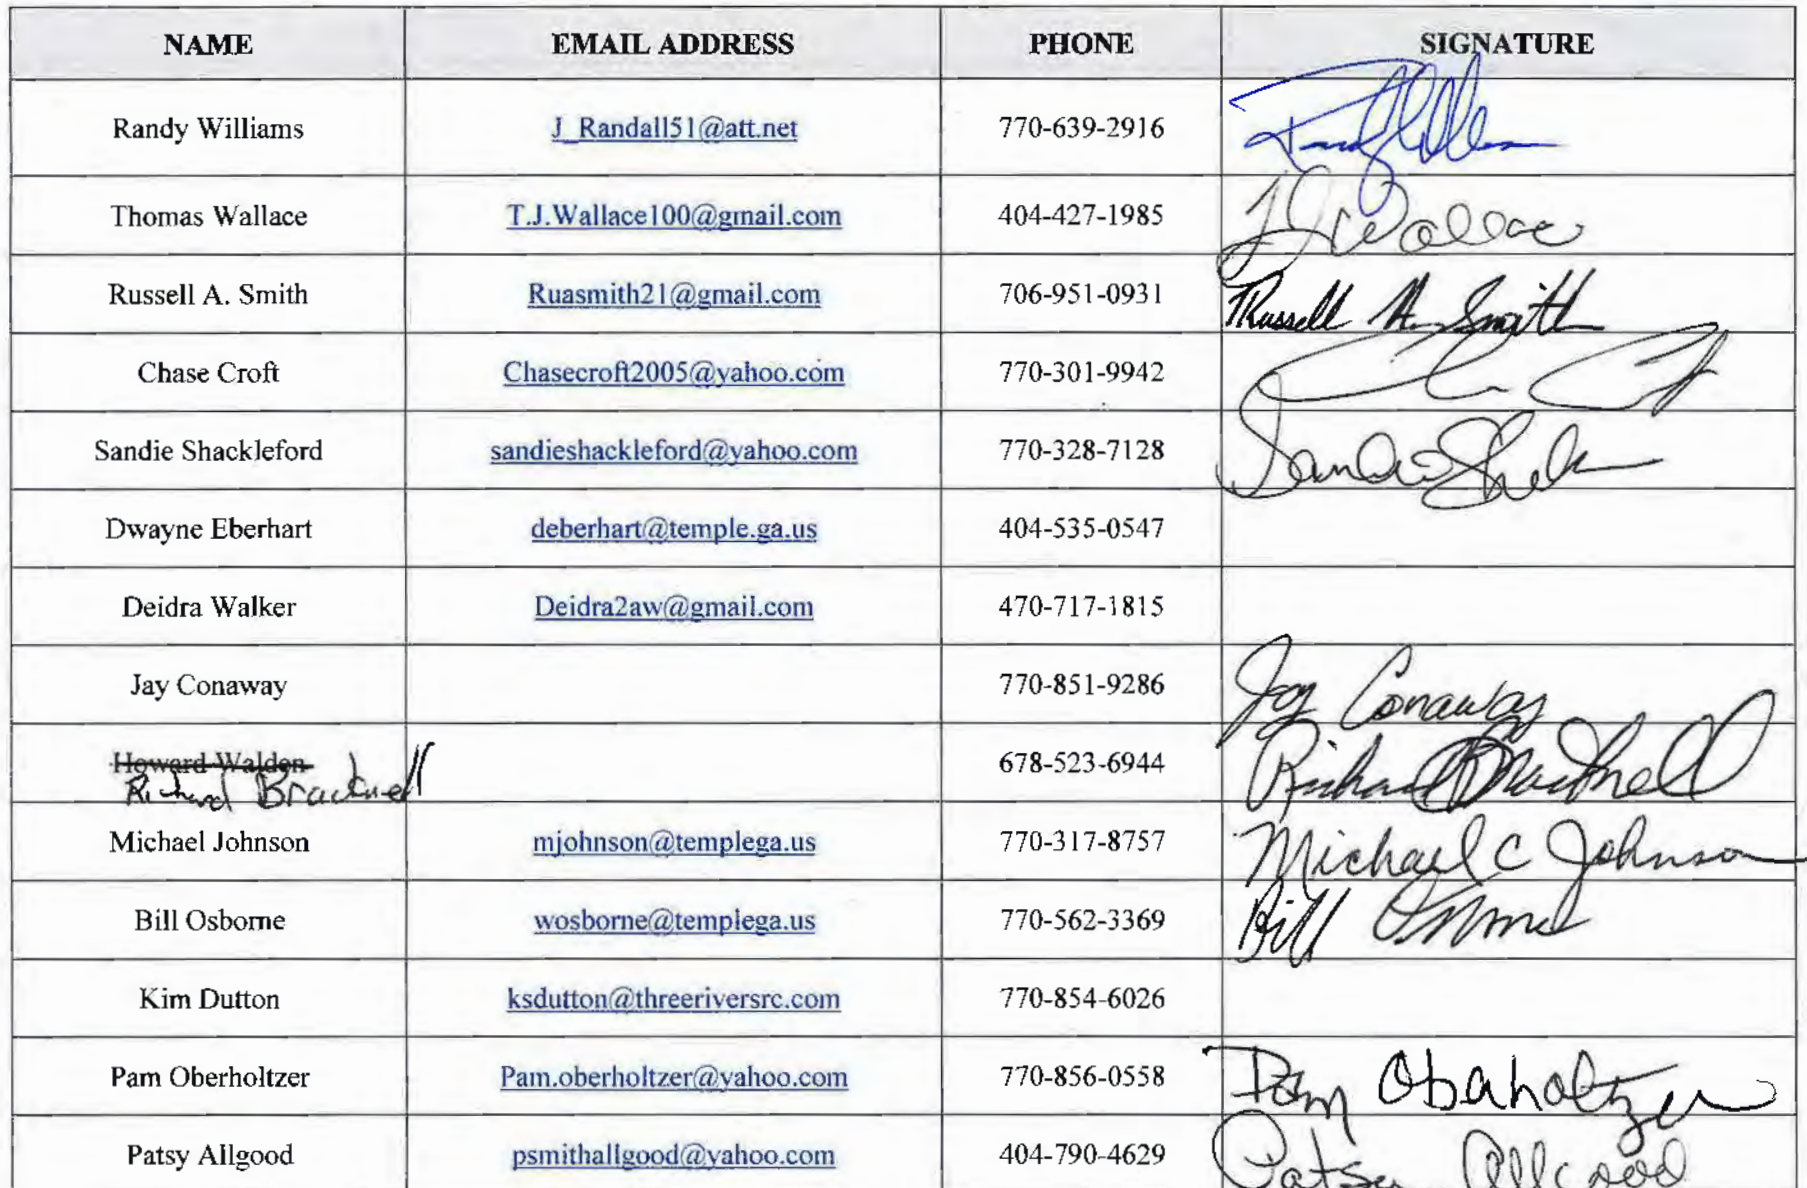 NAME EMAIL ADDRESS PHONE SIGNATURE
Randy Williams J_Randall51@att.net 770-639-2916
Thomas Wallace T.J.Wallace100@gmail.com 404-427-1985 TJ Wallace
Russell A. Smith Ruasmith21@gmail.com 706-951-0931 Russell A. Smith
Chase Croft Chasecroft2005@yahoo.com 770-301-9942
Sandie Shackleford sandieshackleford@yahoo.com 770-328-7128
Dwayne Eberhart deberhart@temple.ga.us 404-535-0547
Deidra Walker Deidra2aw@gmail.com 470-717-1815
Jay Conaway 770-851-9286 Jay Conaway
Howard Walden 678-523-6944 Richard Bracknell
Richard Bracknell
Michael Johnson mjohnson@templega.us 770-317-8757 Michael C Johnson
Bill Osborne wosborne@templega.us 770-562-3369 Bill Osborne
Kim Dutton ksdutton@threeriversrc.com 770-854-6026
Pam Oberholtzer Pam.oberholtzer@yahoo.com 770-856-0558 Pam Oberholtzer
Patsy Allgood psmithallgood@yahoo.com 404-790-4629 Patsy Allgood